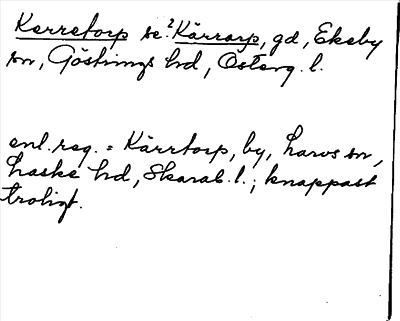 Kerretorp se ²Kärrarp, gd, Ekeby
sn, Göstrings hd, Österg. l.
enl. reg. = Kärrtorp, by, Larvs sn,
Laske hd, Skarab. l.; knappast
troligt.